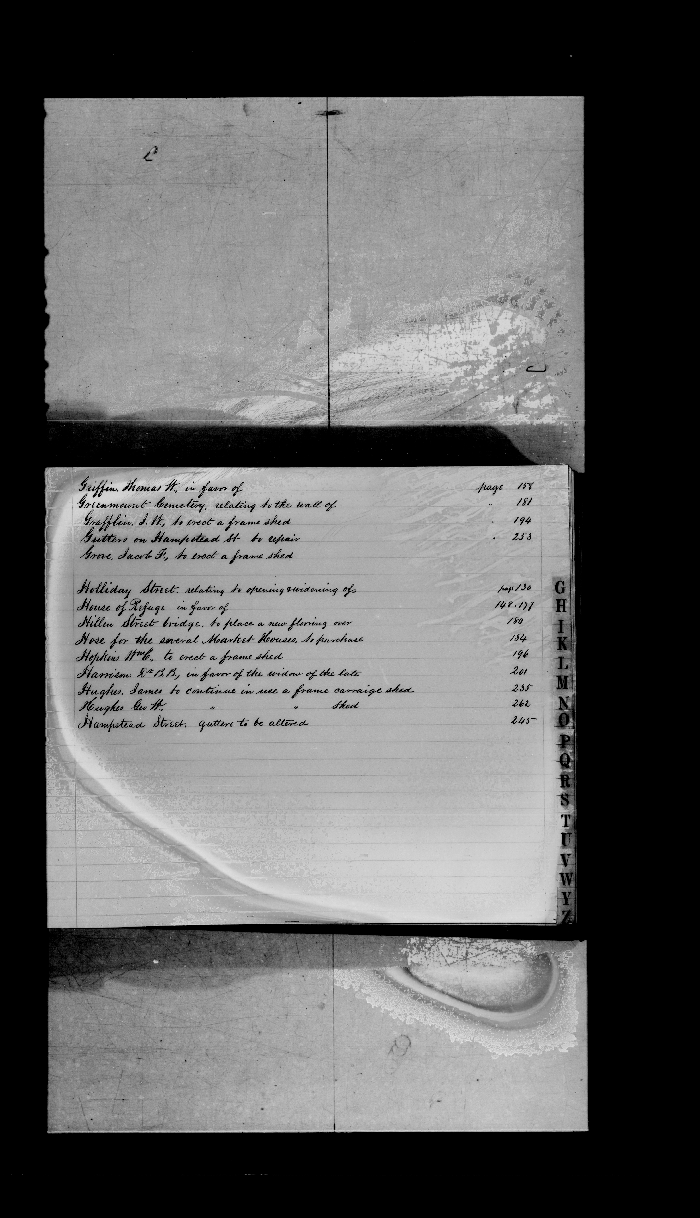 Griffin, Thomas W., in favor of page 158
Greenmount Cemetery, relating to the wall of " 181
Grafflin, J. W., to erect a frame shed " 194
Gutters on Hampstead St to repair " 253
Grove, Jacob F., to erect a frame shed
Holliday Street. relating to opening & widening of page 130
House of Refuge in favor of 148.177
Hillen Street bridge. to place a new flooring over 180
Hose for the several Market Houses, to purchase 184
Hopkins Wm C. to erect a frame shed 196
Harrison in favor of the widow of the late 201
Hughes, James to continue in use a frame carraige shed 235
Hughes Geo W. " " Shed 262
Hampstead Street. gutters to be altered 245
G
H
I
K
L
M
N
O
P
Q
R
S
T
U
V
W
Y
Z